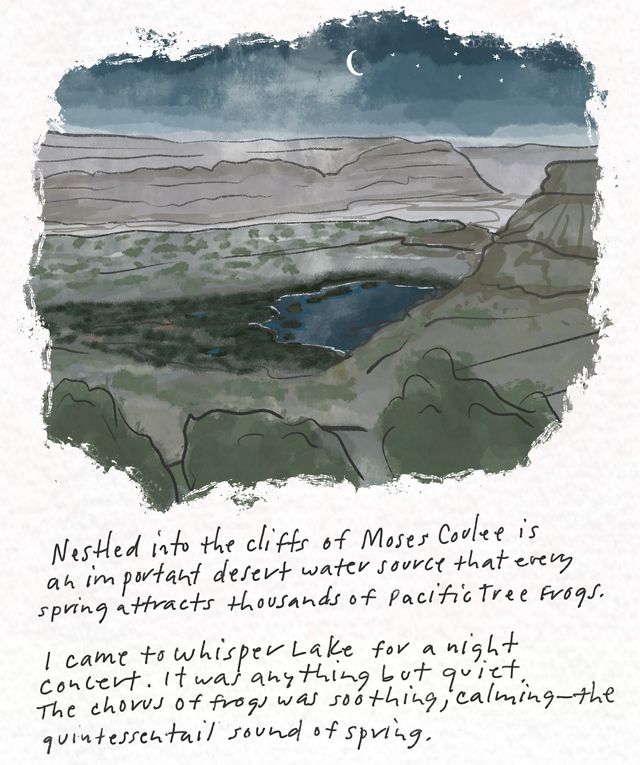 Nestled into the cliffs of Moses Coulee is
an important desert water source that every
spring attracts thousands of Pacific Tree Frogs.
I came to whisper Lake for a night
concert. It was anything but quiet.
The chorus of frogs was soothing, calming—the
quintessentail sound of spring.